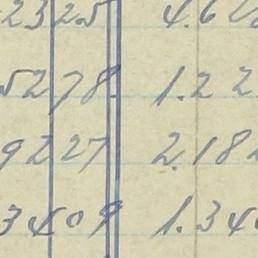 2325 4.6
5278 1.22
9227 2.182
3409 1.34